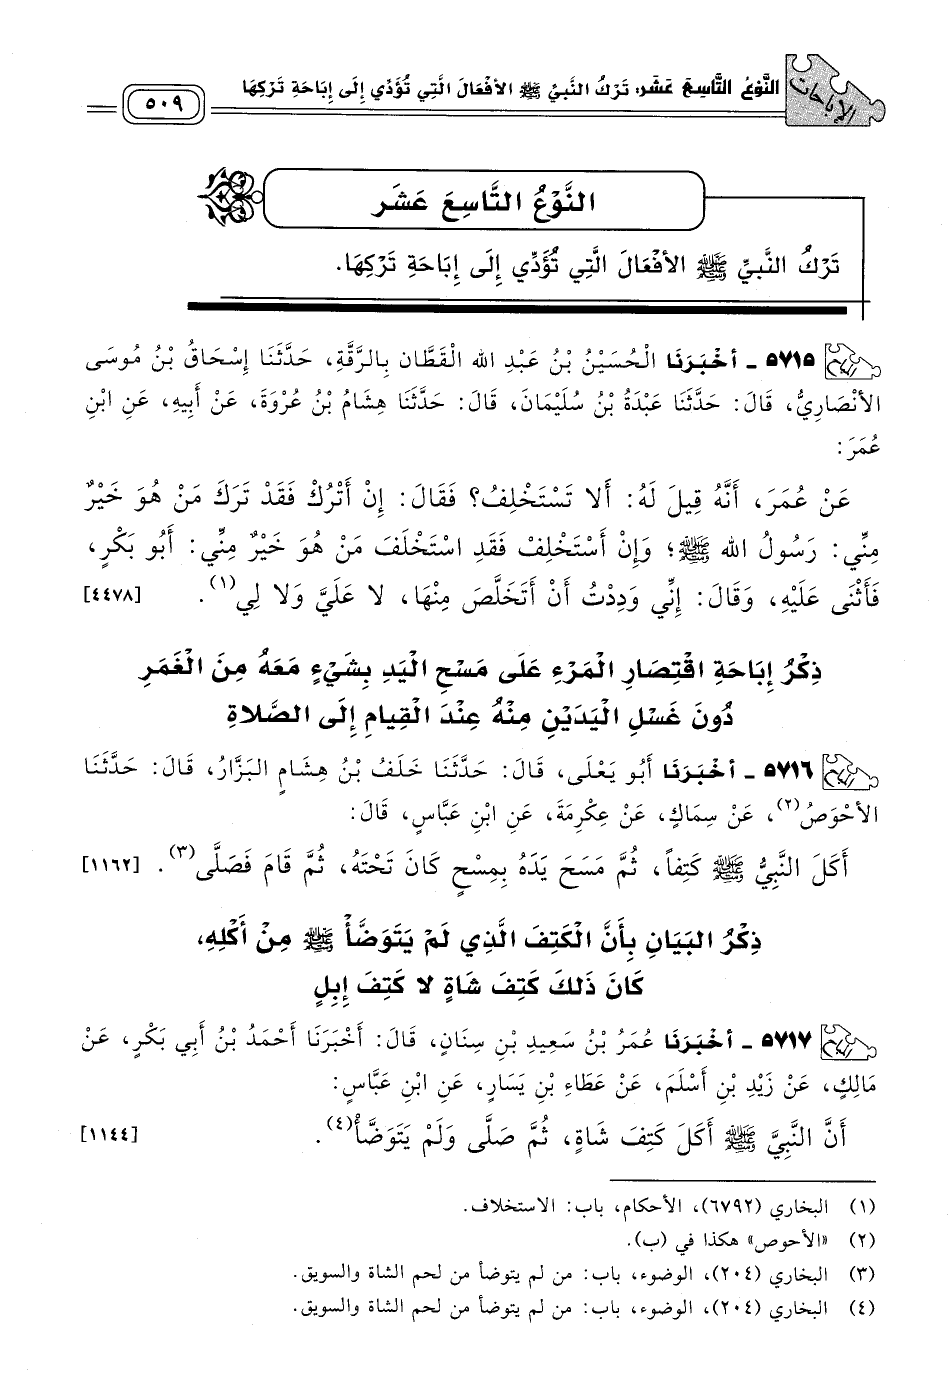 الإباحات
النَّوْعُ التَّاسِعَ عَشَرَ: تَرْكُ النَّبِيِّ ﷺ الأَفْعَالَ الَّتِي تُؤَدِّي إِلَى إِبَاحَةِ تَرْكِهَا
٥٠٩
النَّوْعُ التَّاسِعَ عَشَرَ
تَرْكُ النَّبِيِّ ﷺ الأفْعَالَ الَّتِي تُؤَدِّي إِلَى إِبَاحَةِ تَرْكِهَا.
٥٧١٥ ـ أخْبَرَنَا الْحُسَيْنُ بْنُ عَبْدِ الله الْقَطَّان بِالرَّقَّةِ، حَدَّثَنَا إِسْحَاقُ بْنُ مُوسَى
الأنْصَارِيُّ، قَالَ: حَدَّثَنَا عَبْدَةُ بْنُ سُلَيْمَانَ، قَالَ: حَدَّثَنَا هِشَامُ بْنُ عُرْوَةَ، عَنْ أَبِيهِ، عَنِ ابْنِ
عُمَرَ:
عَنْ عُمَرَ، أَنَّهُ قِيلَ لَهُ: أَلا تَسْتَخْلِفُ؟ فَقَالَ: إِنْ أَتْرُكْ فَقَدْ تَرَكَ مَنْ هُوَ خَيْرٌ
مِنِّي: رَسُولُ الله ﷺ؛ وَإِنْ أَسْتَخْلِفْ فَقَدِ اسْتَخْلَفَ مَنْ هُوَ خَيْرٌ مِنِّي: أَبُو بَكْرٍ،
فَأَثْنَى عَلَيْهِ، وَقَالَ: إِنِّي وَدِدْتُ أَنْ أَتَخَلَّصَ مِنْهَا، لا عَلَيَّ وَلا لِي(١). [٤٤٧٨]
ذِكْرُ إِبَاحَةِ اقْتِصَارِ الْمَرْءِ عَلَى مَسْحِ الْيَدِ بِشَيْءٍ مَعَهُ مِنَ الْغَمَرِ
دُونَ غَسْلِ الْيَدَيْنِ مِنْهُ عِنْدَ الْقِيَامِ إِلَى الصَّلاةِ
٥٧١٦ ـ أخْبَرَنَا أَبُو يَعْلَى، قَالَ: حَدَّثَنَا خَلَفُ بْنُ هِشَامٍ البَزَّارُ، قَالَ: حَدَّثَنَا
الأحْوَصُ(٢)، عَنْ سِمَاكٍ، عَنْ عِكْرِمَةَ، عَنِ ابْنِ عَبَّاسٍ، قَالَ:
أَكَلَ النَّبِيُّ ﷺ كَتِفاً، ثُمَّ مَسَحَ يَدَهُ بِمِسْحٍ كَانَ تَحْتَهُ، ثُمَّ قَامَ فَصَلَّى(٣). [١١٦٢]
ذِكْرُ البَيَانِ بِأَنَّ الْكَتِفَ الَّذِي لَمْ يَتَوَضَّأْ ﷺ مِنْ أَكْلِهِ،
كَانَ ذَلِكَ كَتِفَ شَاةٍ لا كَتِفَ إِبِلٍ
٥٧١٧ ـ أخْبَرَنَا عُمَرُ بْنُ سَعِيدِ بْنِ سِنَانٍ، قَالَ: أَخْبَرَنَا أَحْمَدُ بْنُ أَبِي بَكْرٍ، عَنْ
مَالِكٍ، عَنْ زَيْدِ بْنِ أَسْلَمَ، عَنْ عَطَاءِ بْنِ يَسَارٍ، عَنِ ابْنِ عَبَّاسٍ:
أَنَّ النَّبِيَّ ﷺ أَكَلَ كَتِفَ شَاةٍ، ثُمَّ صَلَّى وَلَمْ يَتَوَضَّأْ(٤). [١١٤٤]
(١) البخاري (٦٧٩٢)، الأحكام، باب: الاستخلاف.
(٢) «الأحوص» هكذا في (ب).
(٣) البخاري (٢٠٤)، الوضوء، باب: من لم يتوضأ من لحم الشاة والسويق.
(٤) البخاري (٢٠٤)، الوضوء، باب: من لم يتوضأ من لحم الشاة والسويق.